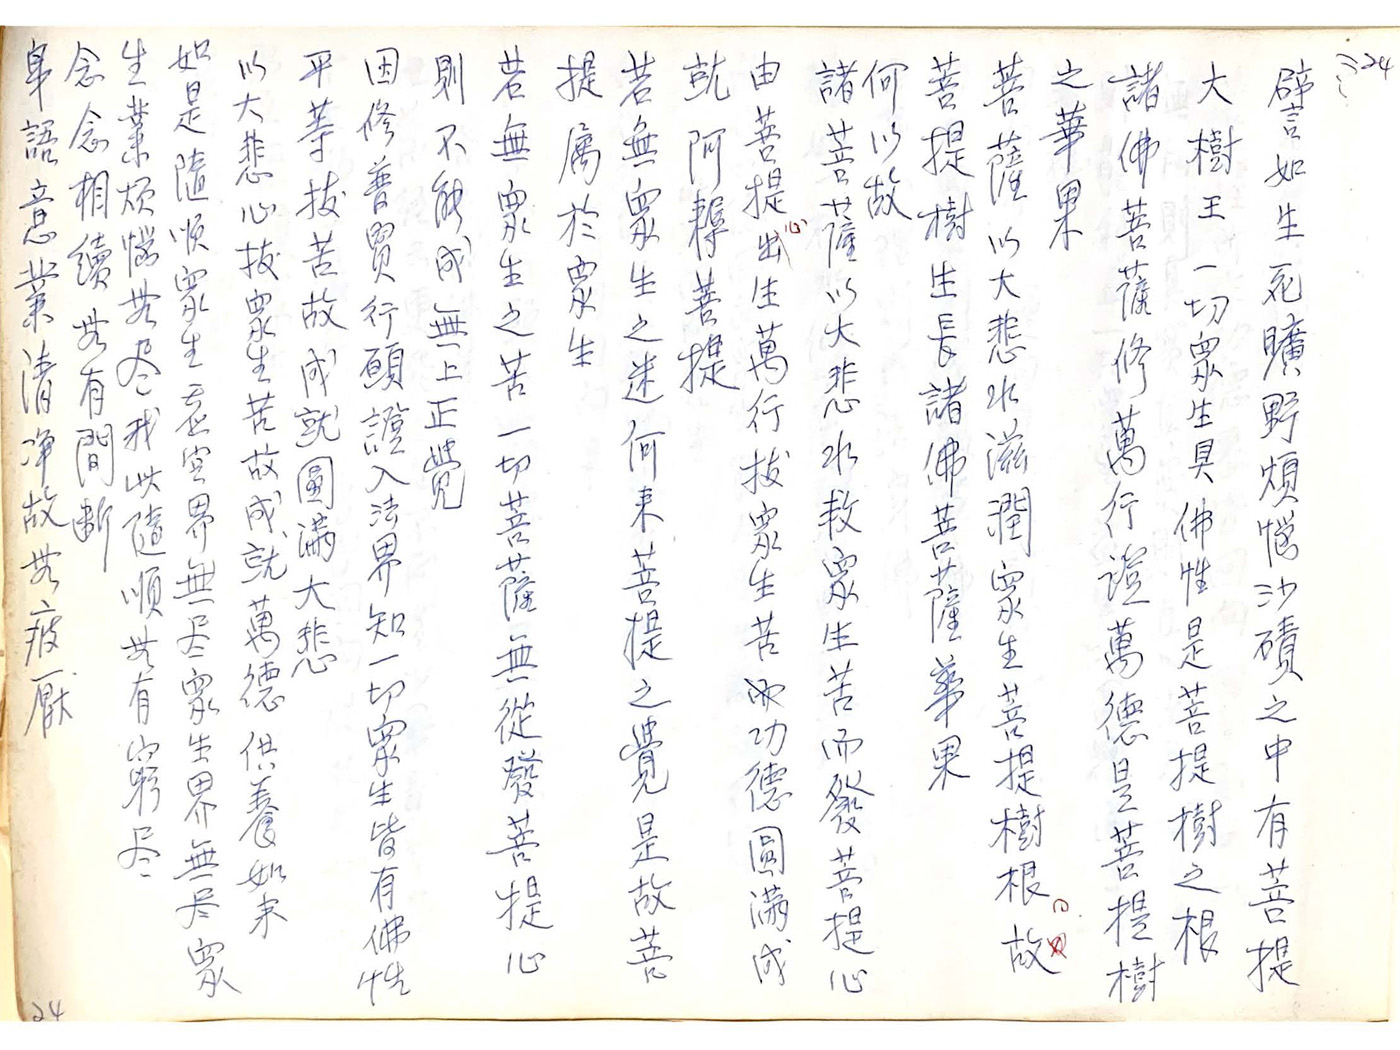 24
譬如生死曠野煩惱沙磧之中有菩提
大樹王一切眾生具佛性是菩提樹之根
諸佛菩薩修萬行證萬德是菩提樹
之華果
菩薩以大悲水滋潤眾生菩提樹根故
菩提樹生長諸佛菩薩華果
何以故
諸菩薩以大悲水救眾生苦而發菩提心
由菩提心出生萬行拔眾生苦而功德圓滿成
就阿耨菩提
若無眾生之迷何來菩提之覺是故菩
提屬於眾生
若無眾生之苦一切菩薩無從發菩提心
則不能成無上正覺
因修普賢行願證入法界知一切眾生皆有佛性
平等拔苦故成就圓滿大悲
以大悲心拔眾生苦故成就萬德供養如來
如是隨順眾生虛空界無尽眾生界無尽眾
生業煩惱無尽我此隨順無有窮尽
念念相續無有間断
身語意業清净故無疲厭
24